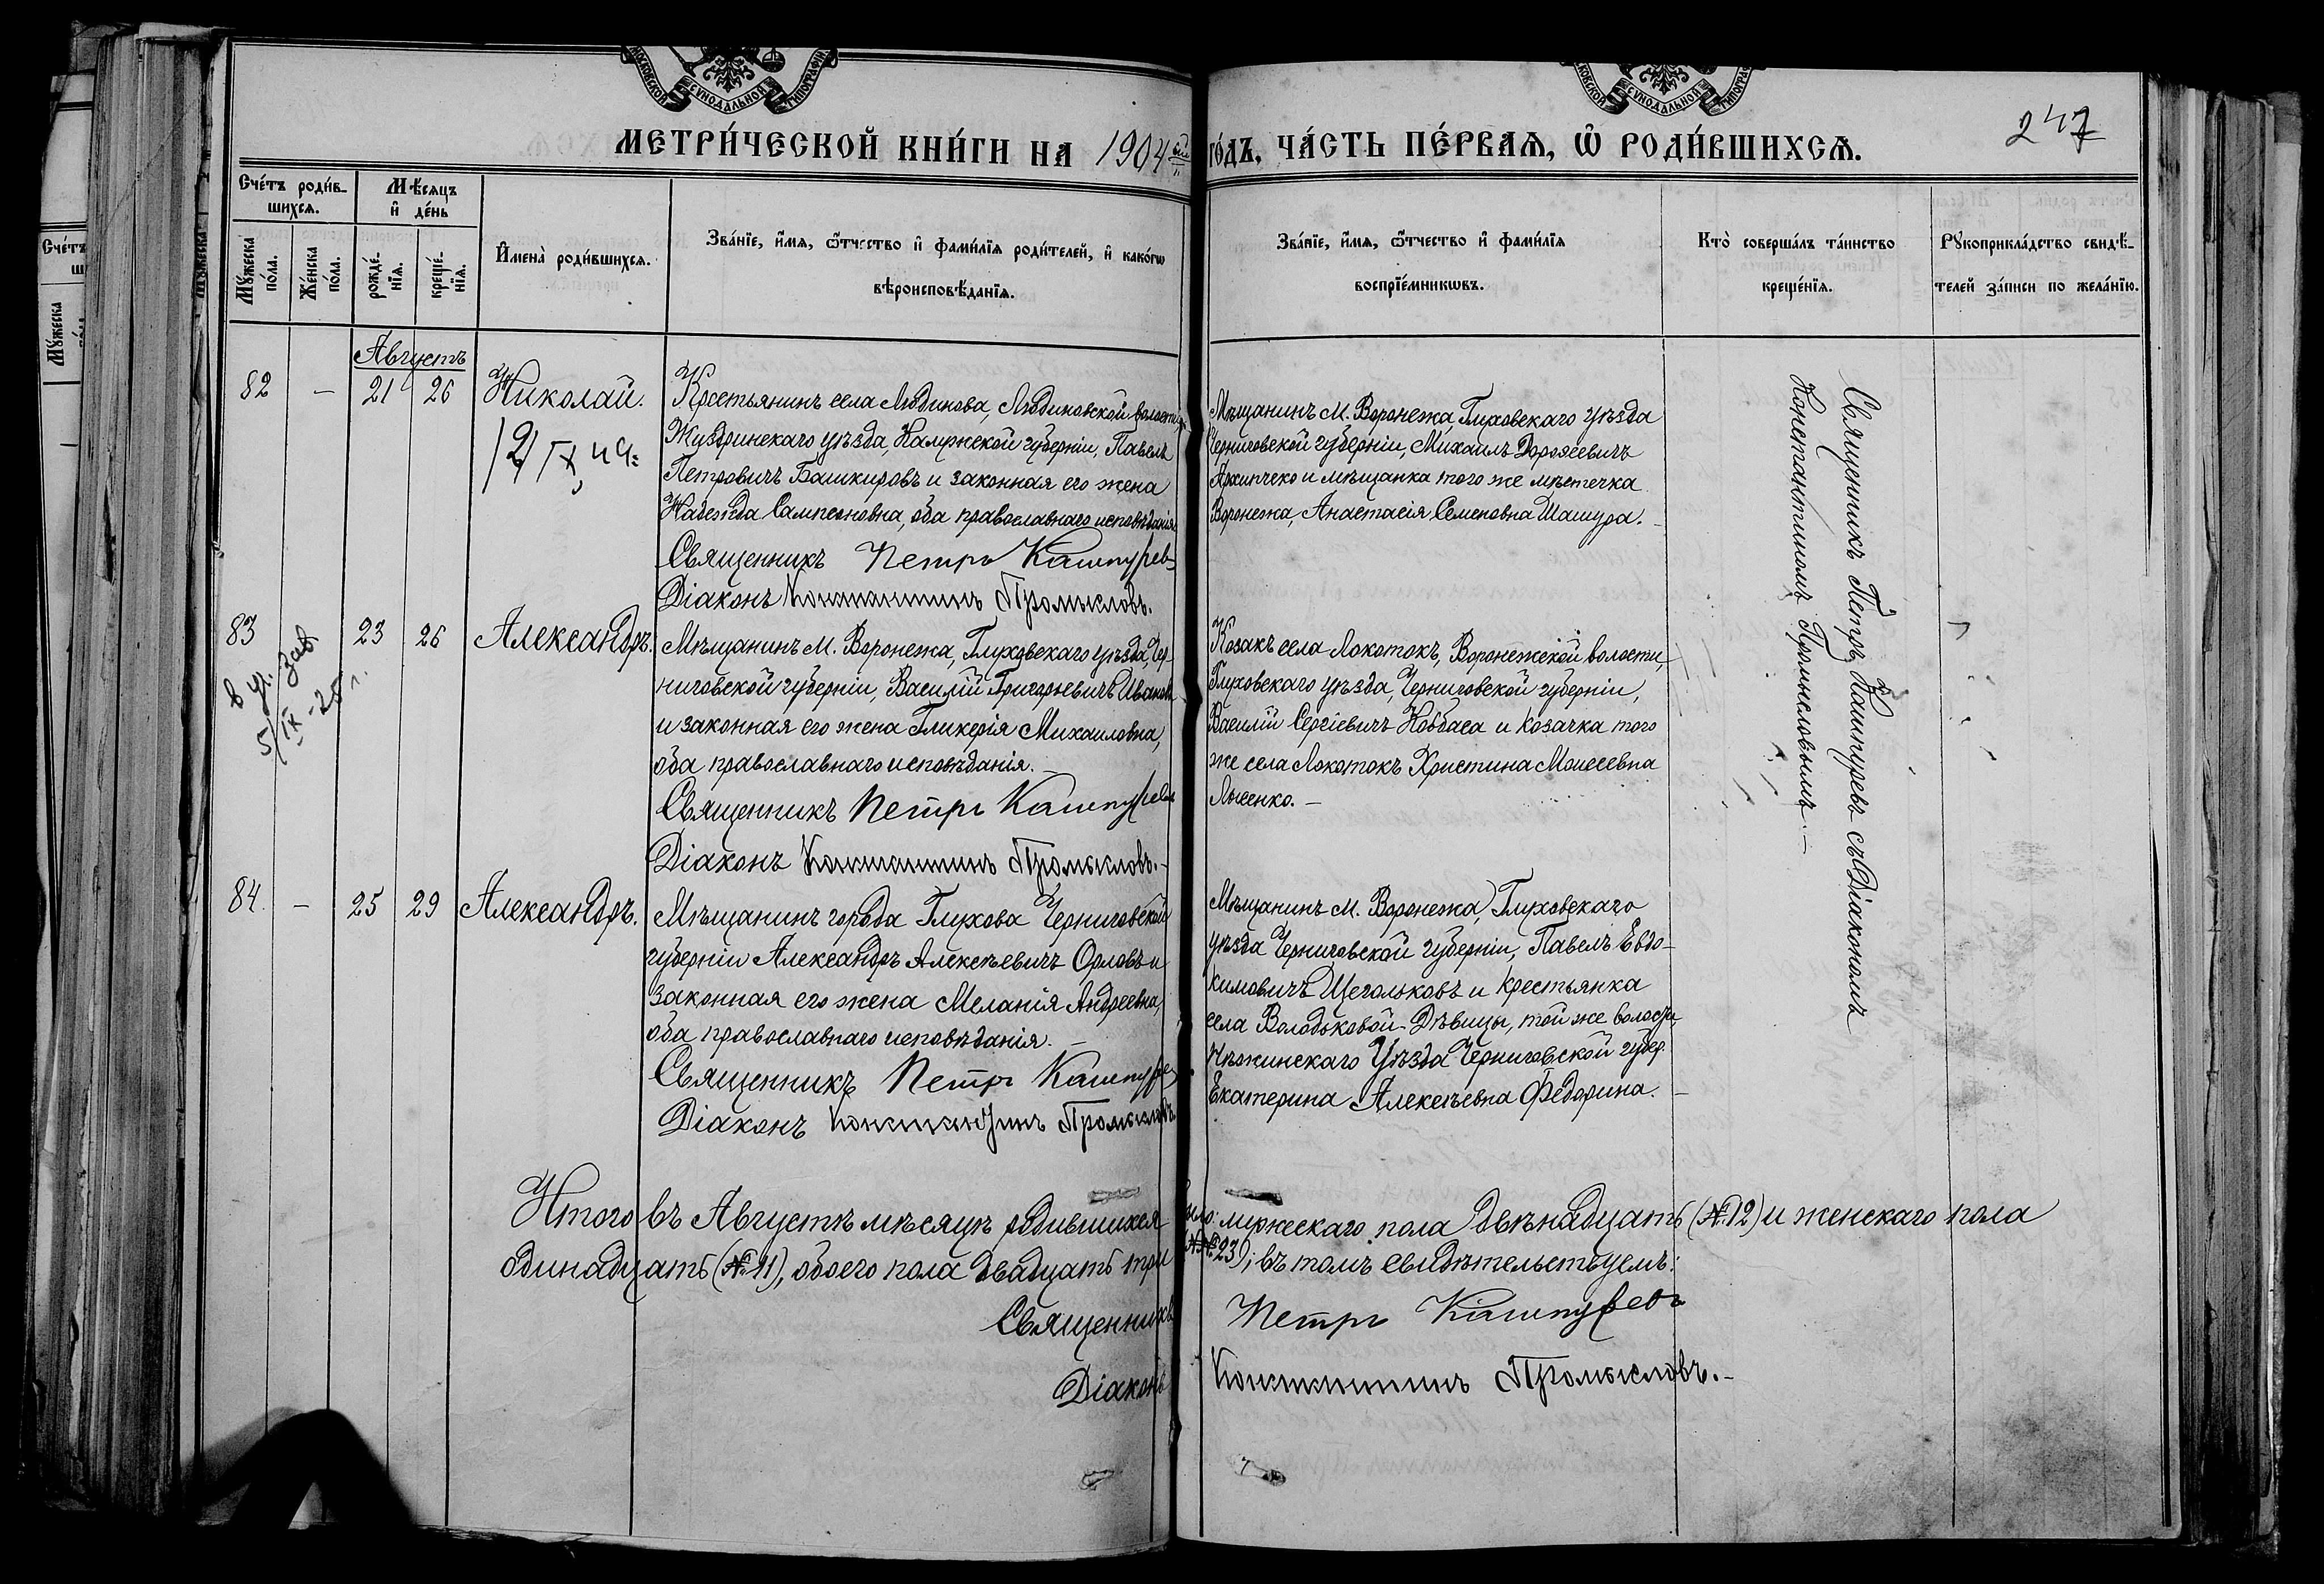 МОСКОВСКОЙ СѴНОДАЛЬНОЙ ТИПОГРАФІИ
МОСКОВСКОЙ СѴНОДАЛЬНОЙ ТИПОГРАФІИ
МЕТРИ́ЧЕСКОЙ КНИ́ГИ НА 1904 го́дъ, ЧА́СТЬ ПЕ́РВАѦ, Ѽ РОДИ́ВШИХСѦ.
247
Сче́тъ роди́в-
шихсѧ.
Мѣ́сѧцъ
и҆ де́нь
Мꙋ́жеска
по́ла.
Же́нска
по́ла.
рожде́-
нїѧ.
креще́-
нїѧ.
И҆мена̀ роди́вшихсѧ.
Зва́нїе, и҆́мѧ, ѻ҆́тчество и҆ фами́лїѧ роди́телей, и҆ како́гѡ
вѣроисповѣ́данїѧ.
Зва́нїе, и҆́мѧ, ѻ҆́тчество и҆ фами́лїѧ
воспрїе́мникѡвъ.
Кто̀ соверша́лъ та́инство
креще́нїѧ.
Рꙋкоприкла́дство свидѣ́-
телей за́писи по жела́нїю.
Августъ
82 — 21 26 Николай.
Крестьянинъ села Людинова, Людиновской волости,
Жиздринскаго уѣзда, Калужской губерніи, Павелъ
Петровичъ Башкировъ и законная его жена
Надежда Сампсоновна, оба православнаго исповѣданія
Священникъ Петръ Кашпуревъ
Діаконъ Константинъ Промысловъ.
Мѣщанинъ М. Воронежа, Глуховскаго уѣзда
Черниговской губерніи, Михаилъ Дорофеевичъ
и мѣщанка того же мѣстечка
Воронежа, Анастасія Семеновна Шашура. —
Священникъ Петръ Кашпуревъ съ Діакономъ
Константиномъ Промысловымъ. —
83 23 26 Александръ.
5/IX-25 г.
Мѣщанинъ М. Воронежа, Глуховскаго уѣзда, Чер-
ниговской губерніи, Василій Григорьевичъ Ивановъ
и законная его жена Гликерія Михаиловна,
оба православнаго исповѣданія. —
Священникъ Петръ Кашпуревъ
Діаконъ Константинъ Промысловъ. —
Козакъ села Локотокъ, Воронежской волости,
Глуховскаго уѣзда, Черниговской губерніи,
Василій Сергіевичъ Ковбаса и козачка того
же села Локотокъ Христина Моисеевна
Лысенко. —
84. — 25 29 Александръ.
Мѣщанинъ города Глухова Черниговской
губерніи Александръ Алексѣевичъ Орловъ и
законная его жена Меланія Андреевна,
оба православнаго исповѣданія. —
Священникъ Петръ Кашпуревъ
Діаконъ Константинъ Промысловъ
Мѣщанинъ М. Воронежа, Глуховскаго
уѣзда Черниговской губерніи, Павелъ Евдо-
кимовичъ Щегольковъ и крестьянка
села Володьковой-Дѣвицы, той же волости,
Нѣжинскаго Уѣзда Черниговской губер.
Екатерина Алексѣевна Федорина. —
Итого въ Августѣ мѣсяцѣ родившихся было: мужескаго пола двѣнадцать (№ 12) и женскаго пола
одинадцать (№ 11), обоего пола двадцать три (№ 23); въ томъ свидѣтельствуемъ:
Священникъ Петръ Кашпуревъ
Діаконъ Константинъ Промысловъ. —